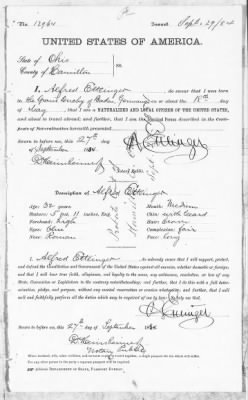 No. 12964 Issued Sept. 29/84
UNITED STATES OF AMERICA.
State of Ohio
County of Hamilton } ss.
I, Alfred Ettinger, do swear that I was born
in the Grand Duchy of Baden Germany on or about the day
of May; that I am a NATURALIZED AND LOYAL CITIZEN OF THE UNITED STATES,
and about to travel abroad; and further, that I am the person described in the
Certificate of Naturalization herewith presented.
Sworn to before me, this 27th day
of September 1884
A. Ettinger
Notary Public.
Description of Alfred Ettinger
Age: 32 years Mouth: Medium
Stature: 5 feet 11 inches, Eng. Chin: with beard
Forehead: high Hair: brown
Eyes: Blue Complexion: fair
Nose: Roman Face: long
I, Alfred Ettinger, do solemnly swear that I will support, protect,
and defend the Constitution and Government of the United States against all enemies, whether domestic or foreign;
and that I will bear true faith, allegiance, and loyalty to the same, any ordinance, resolution, or law of any
State, Convention or Legislature to the contrary notwithstanding; and further, that I do this with a full deter-
mination, pledge, and purpose, without any mental reservation or evasion whatsoever; and further, that I will
well and faithfully perform all the duties which may be required of me by law: So help me God.
A. Ettinger
Sworn to before me, this 27th day of September 1884
Notary Public